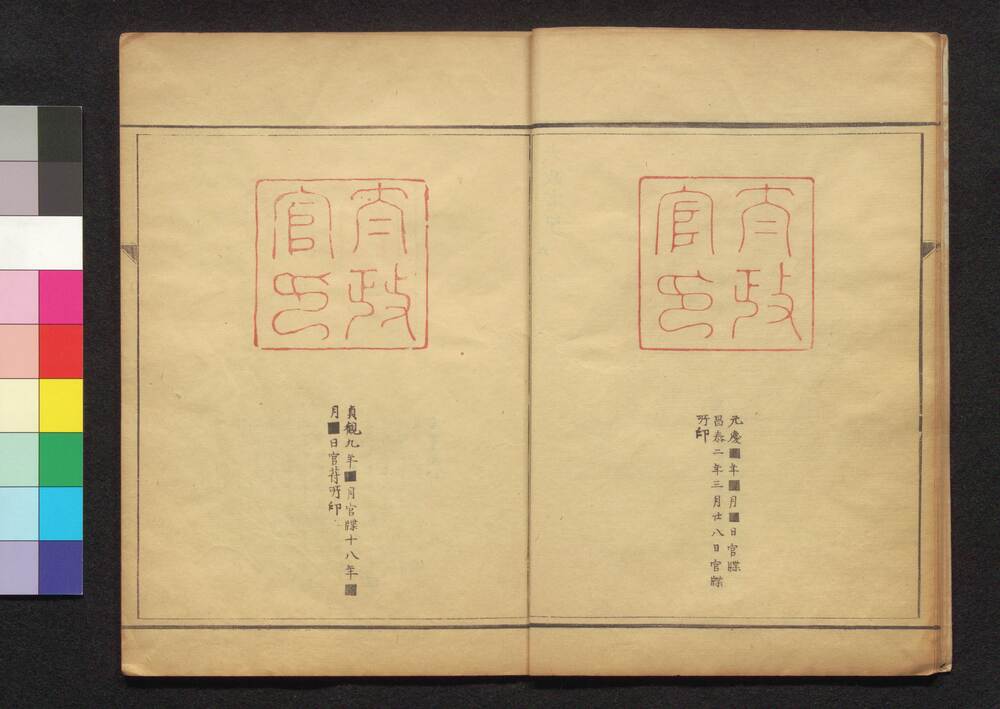 太政
官印
元慶■年■月■日官牒
昌泰二年三月廿八日官牒
所印
太政
官印
貞觀九年■月官牒十八年■
月■日官符所印